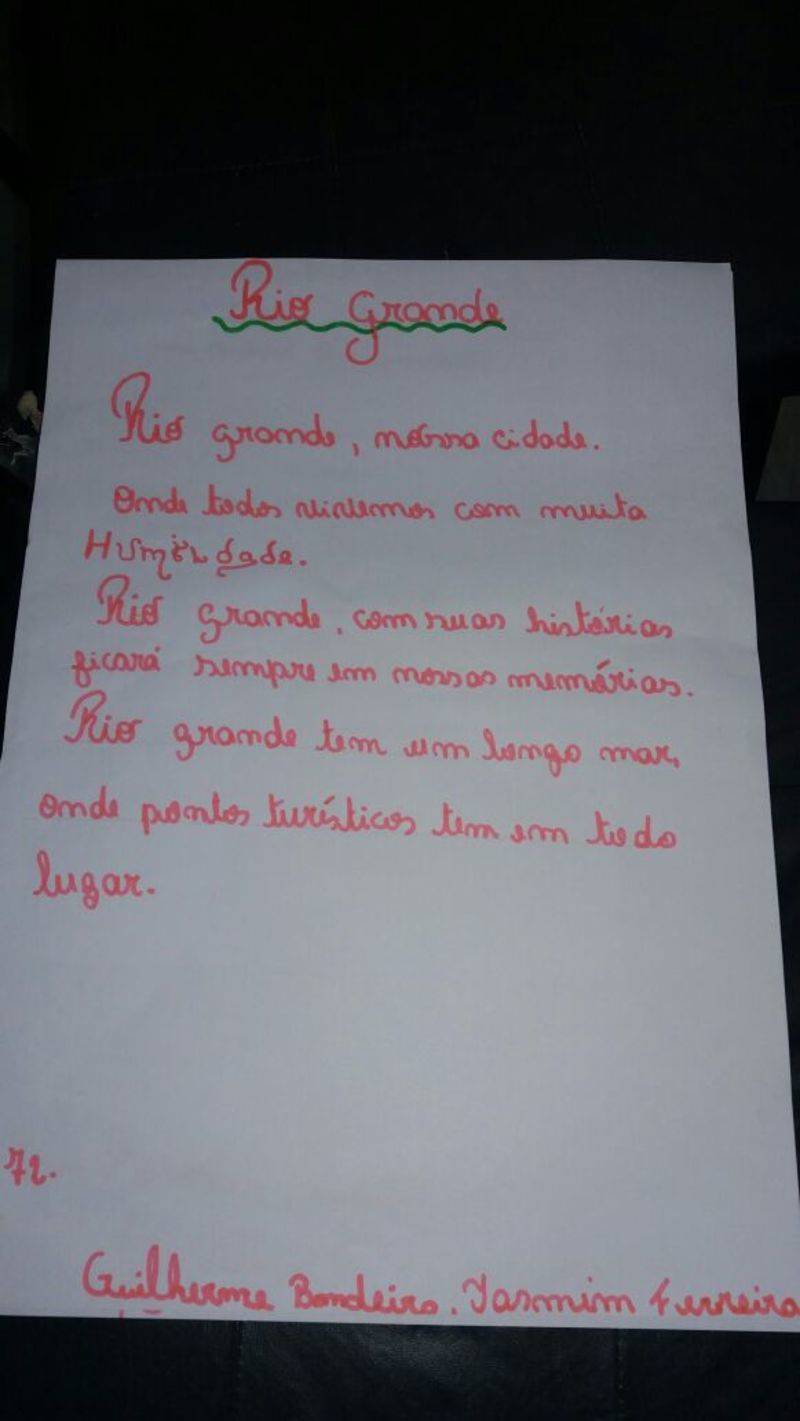 Rio Grande
Rio grande, nóssa cidade.
Onde todos vivemos com muita
Humildade.
Rio grande, com suas histórias
ficará sempre em nossas memórias.
Rio grande tem um longo mar,
onde pontos turísticos tem em todo
lugar.
72.
Guilherme Bandeira. Yasmim Ferreira